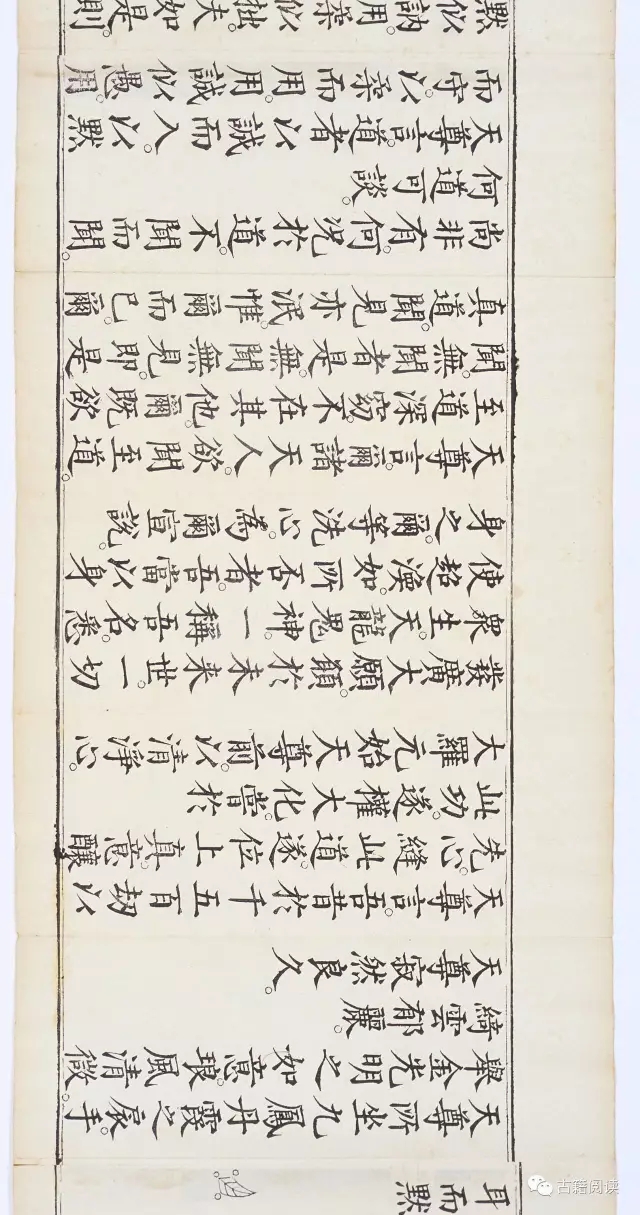 耳而默
天尊所坐九鳳丹霞之扆。手
舉金光明之如意。琅風清微。
綺雲郁麗。
天尊寂然良久。
天尊言。吾昔於千五百劫以
先。心縫此道。遂位上真。意釀
此功。遂權大化。嘗於
大羅元始天尊前。以清淨心。
發廣大願。願於未來世。一切
眾生。天龍鬼神。一稱吾名。悉
使超渙。如所否者。吾當以身
身之。爾等洗心。為爾宣說。
天尊言。爾諸天人。欲聞至道。
至道深窈。不在其他。爾既欲
聞。無聞者是。無聞無見。即是
真道。聞見亦泯。惟爾而已。爾
尚非有。何況於道。不聞而聞。
何道可談。
天尊言。道者。以誠而入。以默
而守。以柔而用。用誠似愚。用
默似訥。用柔似拙。夫如是則
古籍阅读